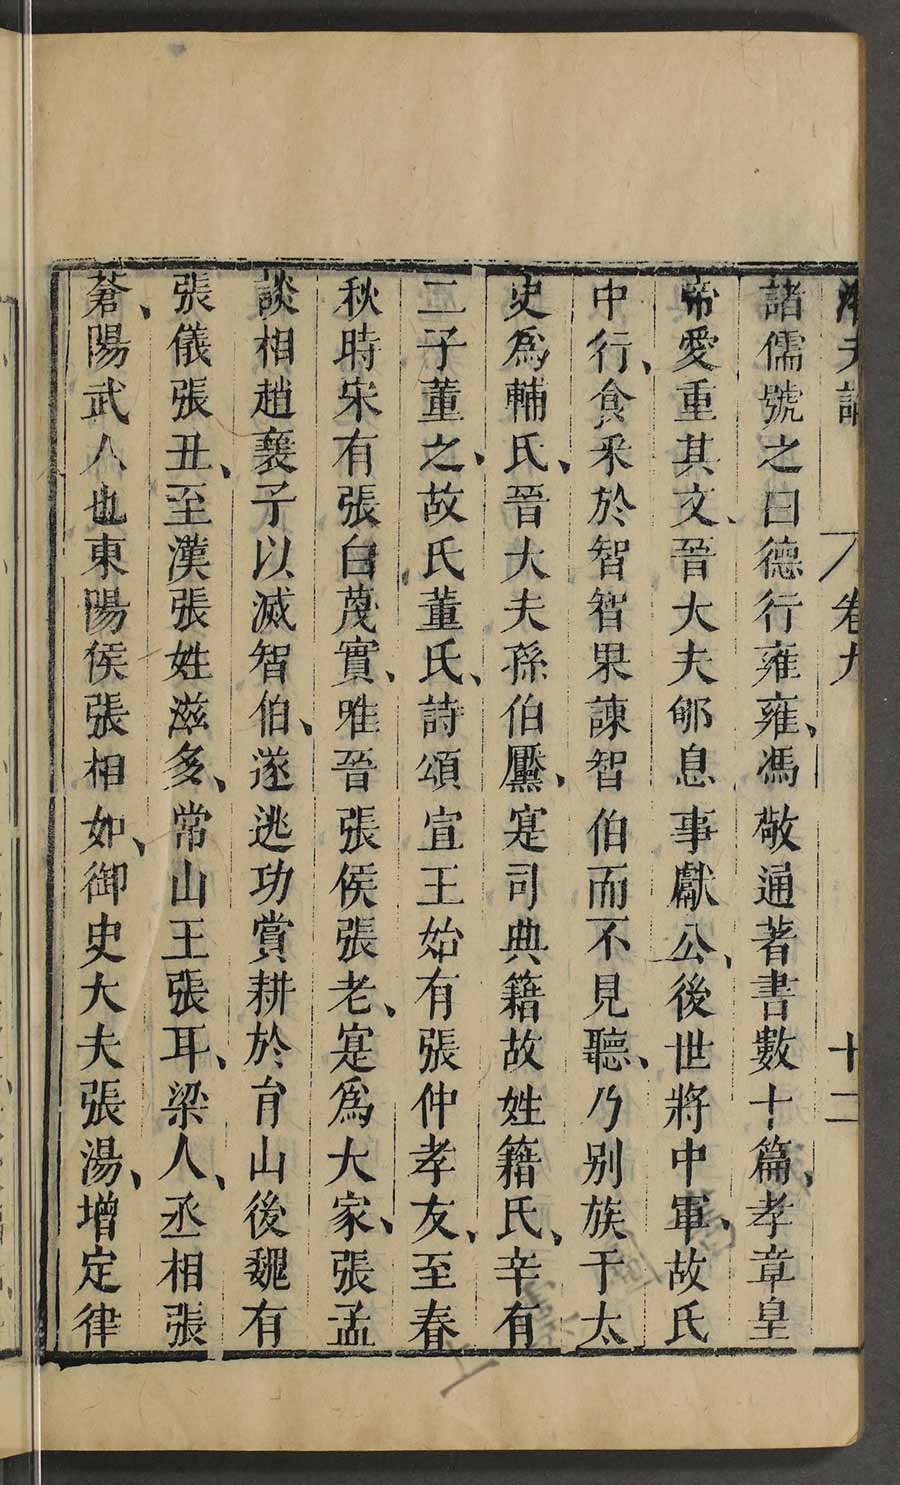 潛夫論 卷九 十二
諸儒號之曰德行雍雍、馮敬通著書數十篇、孝章皇
帝愛重其文、晉大夫郇息事獻公、後世將中軍、故氏
中行、食采於智智果諫智伯而不見聽、乃別族于太
史爲輔氏、晉大夫孫伯黶、寔司典籍故姓籍氏、辛有
二子董之、故氏董氏、詩頌宣王始有張仲孝友、至春
秋時宋有張白蔑實、唯晉張侯張老、寔爲大家、張孟
談相趙襄子以滅智伯、遂逃功賞耕於肓山後魏有
張儀張丑、至漢張姓滋多、常山王張耳、梁人、丞相張
蒼、陽武人也東陽侯張相如、御史大夫張湯、增定律